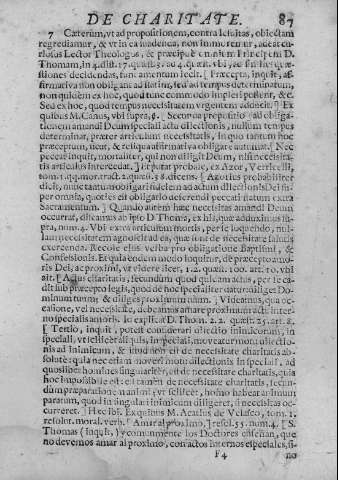 DE CHARITATE. 87
7 Cæterum, ut ad propositionem, contra Icnitas, obiectam
regrediamur, & ut in ea
Lector Theologus, & præcipuè D.
Thomam, in 4. dist. 17. quæst. 3. ad 4. quæst. ubi, quæ-
stiones decidendas, fundamentum iecit. [ Præcepta, inquit, af-
firmativa non obligant ad statim, sed ad tempus determinatum,
non quidem ex hoc, quod tunc commodè impleri possent, &c.
Sed ex hoc, quod tempus necessitatem urgentem adducit. ] Ex
quibus M. Canus, ubi supra, [ Secunda propositio: ad obliga-
tionem amandi Deum speciali actu dilectionis, nullum tempus
determinat, præter articulum necessitatis, in quo tantum hoc
præceptum, sicut, & reliqua affirmativa obligare autumat. [ Nec
peccat inquit, mortaliter, qui non diligit Deum, nisi necessita-
tis articulus intercedat. ] Et patet probatè, ex Azor, Verricelli,
tom. 1. qq. mor. tract. 2. quæst. 38. dicens. [ Azorius probabiliter
dicit, nunc tantum obligari fidelem ad actum dilectionis Dei su-
per omnia, quoties est obligatio delendi peccati mortem extra
Sacramentum. ] Quando autem hæc necessitas amandi Deum
occurrat, discamus ab ipso D. Thoma, ex his, quæ adduximus su-
pra, num. 4. Ubi extra articulum mortis, per se loquendo, nul-
lam necessitatem agnoscit ad ea, quæ sunt de necessitate salutis
exercenda. Recole eius verba pro obligatione Baptismi, &
Confessionis. Et quia eodem modo loquitur, de præcepto amo-
ris Dei, ac proximi, ut videre licet, 1. 2. quæst. 100. art. 10. ubi
ait. [ Actus charitatis, secundum quod quidam actus, per se ca-
dit sub præcepto legis, quod de hoc specialiter datur: diliges Do-
minum tuum; & diliges proximum tuum. ] Videamus, qua oc-
casione, vel necessitate, debeamus amare proximum actu inter-
no speciali amoris. Id explicat D. Thom. 2. 2. quæst. 25. art. 8.
[ Tertio, inquit, potest considerari dilectio inimicorum, in
speciali, ut scilicet aliquis, in speciali, moveatur motu dilectio-
nis ad inimicum, & istud non est de necessitate charitatis abso-
lutè: quia nec etiam moveri motu dilectionis in speciali, ad
quoslibet homines singulariter, est de necessitate charitatis, quia
hoc impossibile est: est tamen de necessitate charitatis, secun-
dum præparationem animi, ut scilicet, homo habeat animum
paratum, quod in singulari inimicum diligeret, si necessitas oc-
curreret. ] Hæc ibi. Ex quibus M. Acacius de Velasco, tom. 1.
resolut. moral. verb. [ Amar al proximo, ] resol. 55. num. 4. [ S.
Thomas (inquit,) y comunmente los Doctores enseñan, que
no devemos amar al proximo, con actos internos especiales, si-
F 4 no